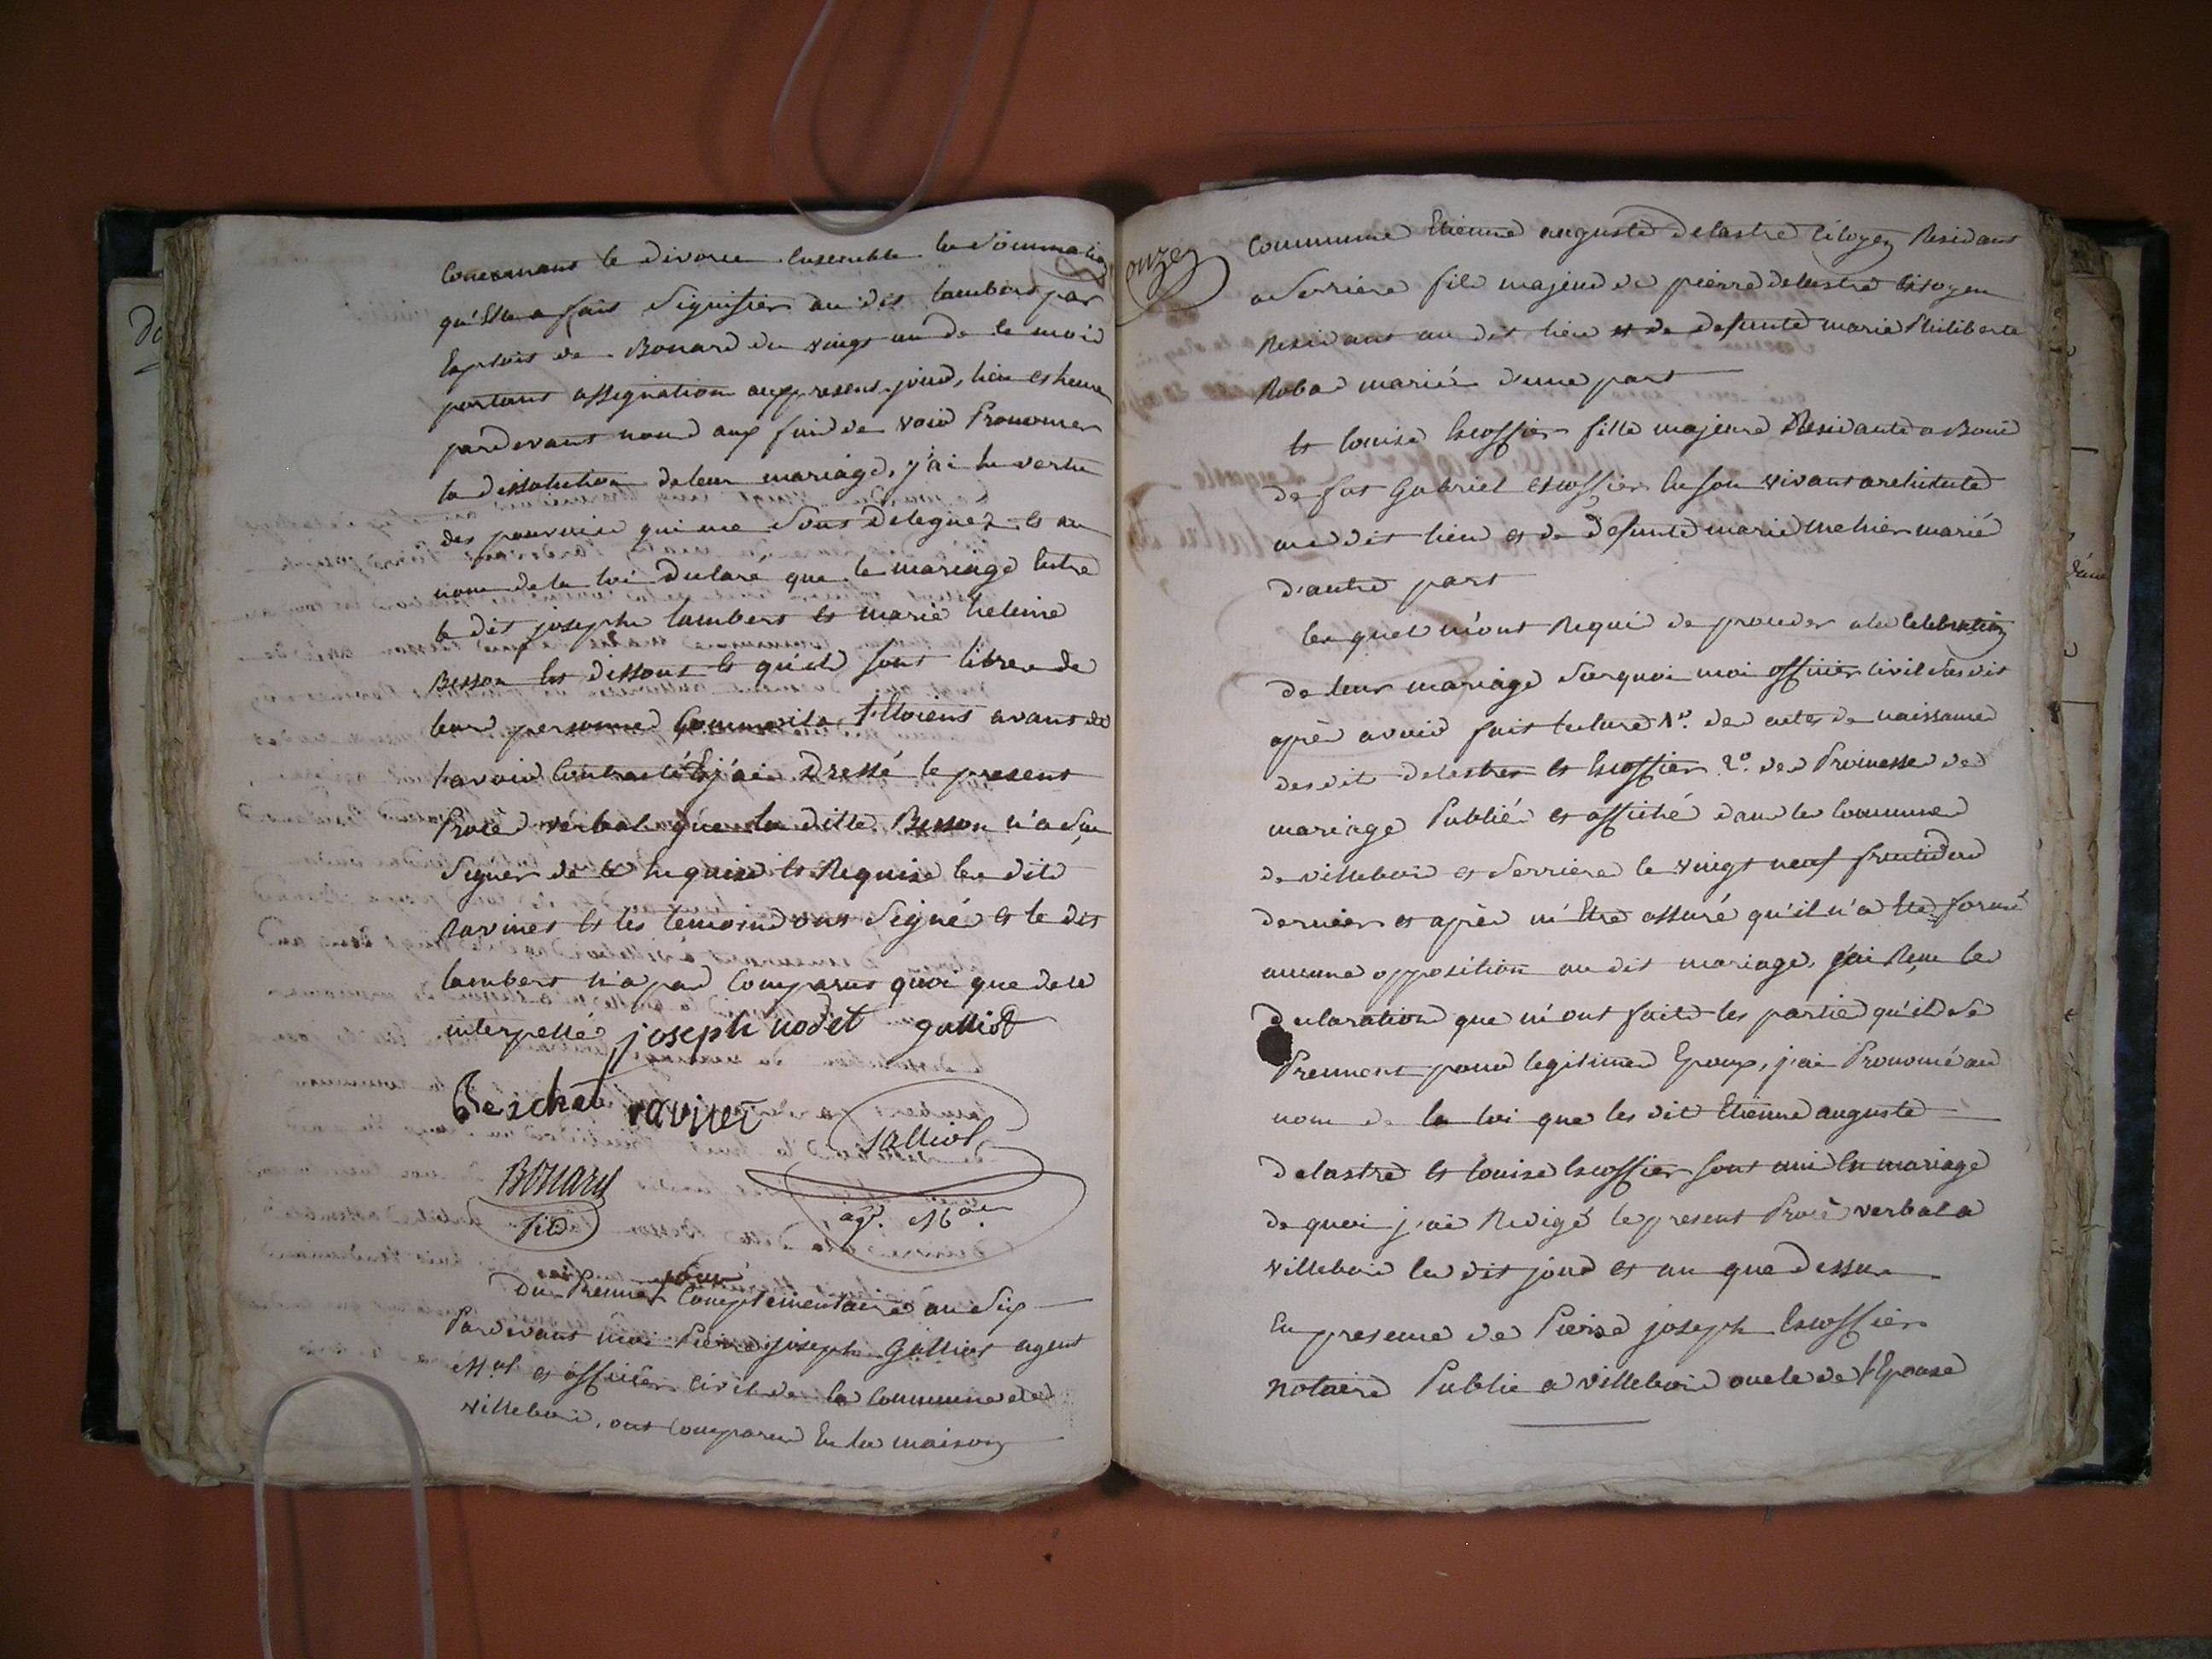 Concernant le divorce Ensemble la Sommation
qu'Elle a fait Signifier au dit lambert par
Exploit de Bonard du vingt un de ce mois
portant assignation au present jour, lieu et heure
pardevant nous aux fins de voir Prononcer
la dissolution de leur mariage, j'ai En vertu
des pouvoirs qui me Sont Delegués et au
nom de la loi Declaré que le mariage Entre
le dit joseph lambert et marie helene
Besson Est dissout et qu'ils sont libres de
leur personne Comme ils L'Etoient avant de
l'avoir Contracté Et j'ai Dressé le present
Procès verbal que la ditte Besson n'a Sçu
Signer de ce Enquise et Requise les dits
ravinet et les temoins ont Signé et le dit
lambert n'a pas Comparut quoi que de ce
interpellé, joseph nodet galliot
Beschet ravinet
galliot
Bonard
agt. Mal.
fils
jour
Du Premier Complementaire an Six
Pardevant moi Pierre joseph Galliot agent
Mal et officier Civil de la Commune de
villebois, ont Comparu En la maison
onzey
Commune Etienne auguste delastre Citoyen Residant
a Serriere fils majeur de pierre delastre Citoyen
Residant au dit lieu et de defunte marie Philiberte
Roba mariés d'une part
Et louise Escoffier fille majeure Residante a Bouis
de fut Gabriel escoffier En son vivant architecte
au dit lieu et de defunte marie mehier mariés
d'autre part
les quels m'ont Requi de proceder a la Celebration
de leur mariage Surquoi moi officier Civil Susdit
après avoir fait lecture 1°. des actes de naissance
desdit delastre et Escoffier 2°. des Promesse de
mariage Publiés et affiché dans les Communes
de villebois et Serriere le vingt neuf fructidor
dernier et après m'Etre assuré qu'il n'a Eté formé
aucune opposition au dit mariage, j'ai Reçu les
Declaration que m'ont faite les parties qu'ils Se
Prennent pour legitimes Epoux, j'ai Prononcé au
nom de la loi que les dit Etienne auguste
delastre et louise Escoffier sont unis En mariage
de quoi j'ai Redigé le present Procès verbal a
villebois les dit jour et an que dessus
En presence de Pierre joseph Escoffier
notaire Public a villebois oncle de l'Epouse